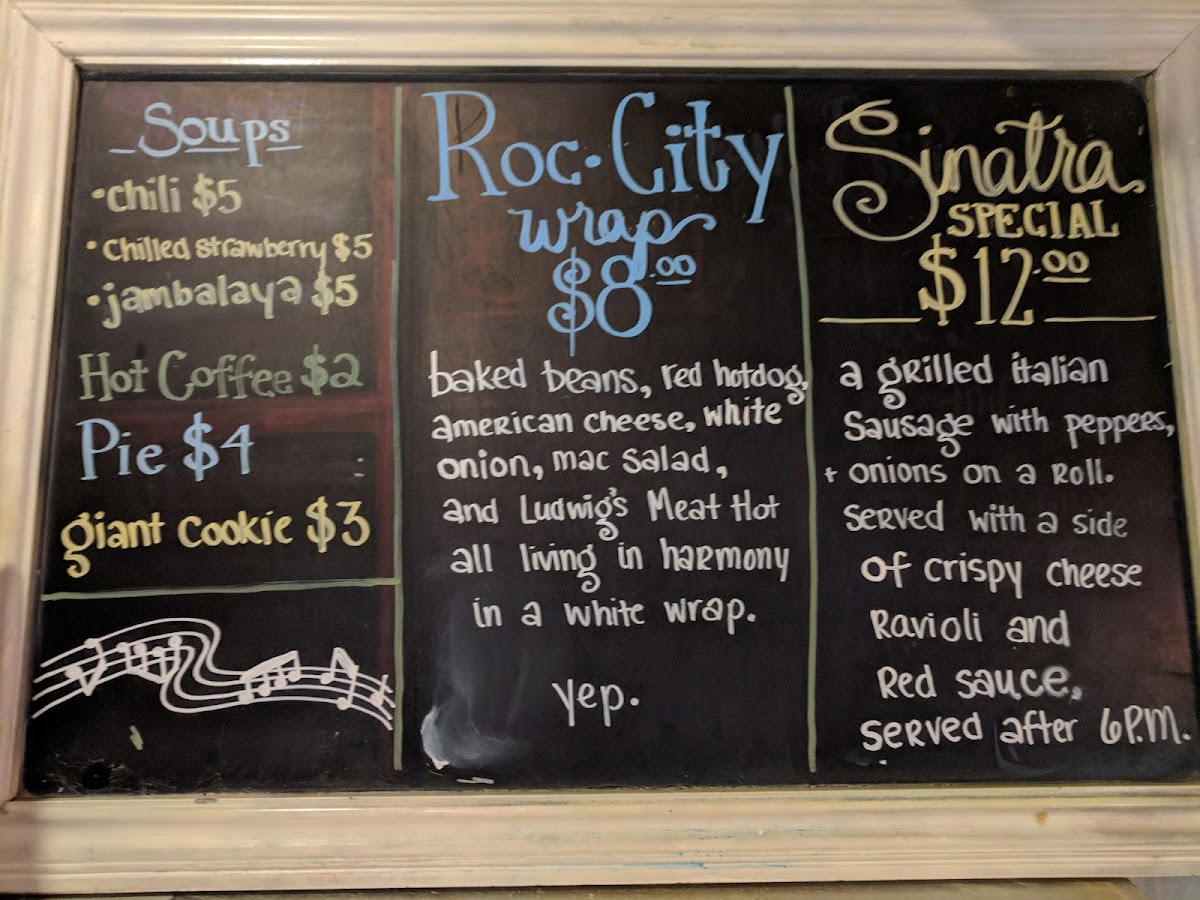 Soups
•chili $5
•Chilled strawberry $5
•jambalaya $5
Hot Coffee $2
Pie $4
giant cookie $3
Roc•City
wrap
$8.00
baked beans, red hotdog,
american cheese, white
onion, mac salad,
and Ludwig's Meat Hot
all living in harmony
in a white wrap.
yep.
Sinatra
SPECIAL
$12.00
a grilled italian
Sausage with peppers,
+ onions on a Roll.
served with a side
of crispy cheese
Ravioli and
Red sauce,
served after 6P.M.